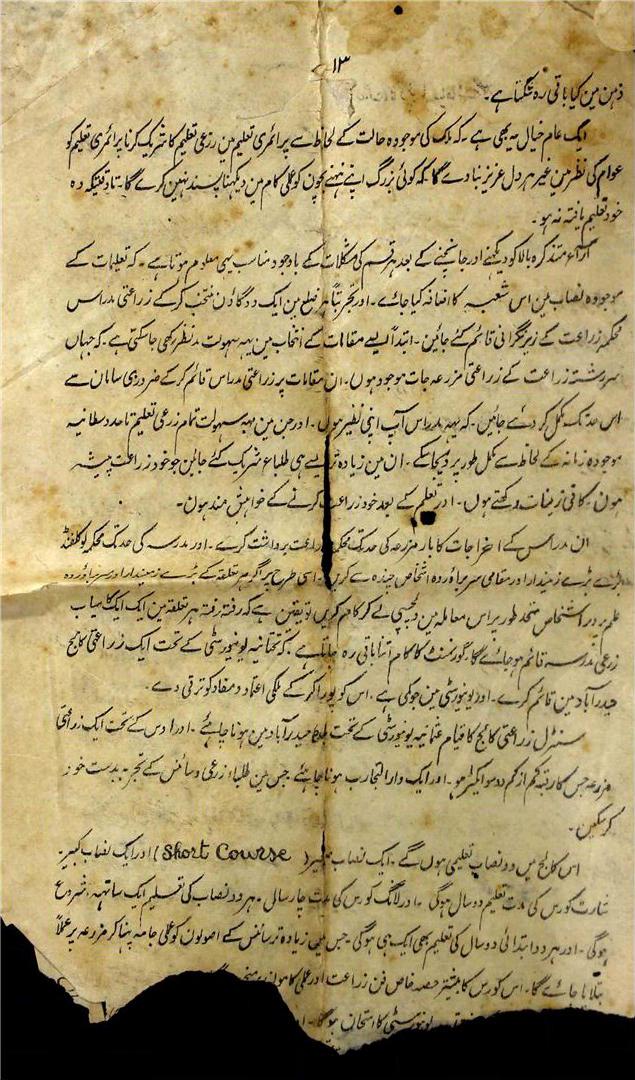 ۱۳
ذہن مین کیا باقی رہ سکتا ہے۔
ایک عام خیال یہ بھی ہے۔ کہ ملک کی موجودہ حالت کے لحاظ سے پرائمری تعلیم مین زرعی تعلیم کا شریک کرنا پرائمری تعلیم کو
عوام کی نظر مین غیر ہر دل عزیز بنا دے گا۔ کہ کوئی بزرگ اپنے ننھے بچون کو عملی کام مین دیکھنا پسند نہین کرے گا۔ تا وقتیکہ وہ
خود تعلیم یافتہ نہ ہو۔
آراء متذکرہ بالا کو دیکھنے اور جانچنے کے بعد ہر قسم کی مشکلات کے باوجود مناسب یہی معلوم ہوتا ہے۔ کہ تعلیمات کے
موجودہ نصاب مین اس شعبہ کا اضافہ کیا جائے۔ اور تجربتاً ہر ضلع مین ایک دو گاؤن منتخب کر کے زراعتی مدارس
محکمہ زراعت کے زیر نگرانی قائم کئے جائین۔ ابتداً ایسے مقامات کے انتخاب مین یہہ سہولت مد نظر رکھی جا سکتی ہے۔ کہ جہان
سررشتہ زراعت کے زراعتی مزرعہ جات موجود ہون۔ ان مقامات پر زراعتی مدارس قائم کر کے ضروری سامان سے
اس حد تک مکمل کر دئے جائین۔ کہ یہہ مدارس آپ اپنی نظیر ہون۔ اور جن مین بہہ سہولت تمام زرعی تعلیم تا حد وسطانیہ
موجودہ زمانہ کے لحاظ سے مکمل طور پر دیجا سکے۔ ان مین زیادہ تر ایسے ہی طلباء شریک کئے جائین جو خود زراعت پیشہ
ہون۔ کافی زمینات رکھتے ہون۔ اور تعلیم کے بعد خود زراعت کرنے کے خواہش مند ہون۔
ان مدارس کے اخراجات کا بار مزرعہ کی حد تک محکمہ زراعت برداشت کرے۔ اور مدرسہ کی حد تک محکمہ لوکلفنڈ
بڑے بڑے زمیندار اور مقامی سربرآوردہ اشخاص چندہ سے کرین۔ اسی طرح پر اگر ہر تعلقہ کے بڑے زمیندار اور سربرآوردہ
علم پرور اشخاص متحد طور پر اس معاملہ مین دلچسپی لے کر کام کرین تو یقین ہے کہ رفتہ رفتہ ہر تعلقہ مین ایک ایک کامیاب
زرعی مدرسہ قائم ہو جائے گا۔ گورنمنٹ کا کام اتنا باقی رہ جاتا ہے کہ عثمانیہ یونیورسٹی کے تحت ایک زراعتی کالج
حیدرآباد مین قائم کرے۔ اور یونیورسٹی مین جو کمی ہے۔ اس کو پورا کر کے ملکی اعتماد و مفاد کو ترقی دے۔
سنٹرل زراعتی کالج کا قیام عثمانیہ یونیورسٹی کے تحت بلدہ حیدرآباد مین ہونا چاہئے۔ اور اوس کے تحت ایک زراعتی
مزرعہ جس کا رقبہ کم از کم دو سو ایکٹر ہو۔ اور ایک دار التجارب ہونا چاہئے جس مین طلباء زرعی و سائنس کے تجربہ بدست خود
کر سکین۔
اس کالج مین دو نصاب تعلیمی ہون گے۔ ایک نصاب صغیر (Short Course) اور ایک نصاب کبیر۔
شارٹ کورس کی مدت تعلیم دو سال ہوگی۔ اور لانگ کورس کی مدت چار سال۔ ہر دو نصاب کی تعلیم ایک ساتھ شروع
ہوگی۔ اور ہر دو ابتدائی دو سال کی تعلیم بھی ایک ہی ہوگی۔ جس مین زیادہ تر سائنس کے اصولون کو عملی جامہ پہنا کر مزرعہ پر عملاً
بتلایا جائے گا۔ اس کورس کا بیشتر حصہ خاص فن زراعت اور عملی کامون پر
یونیورسٹی کا امتحان ہوگا۔